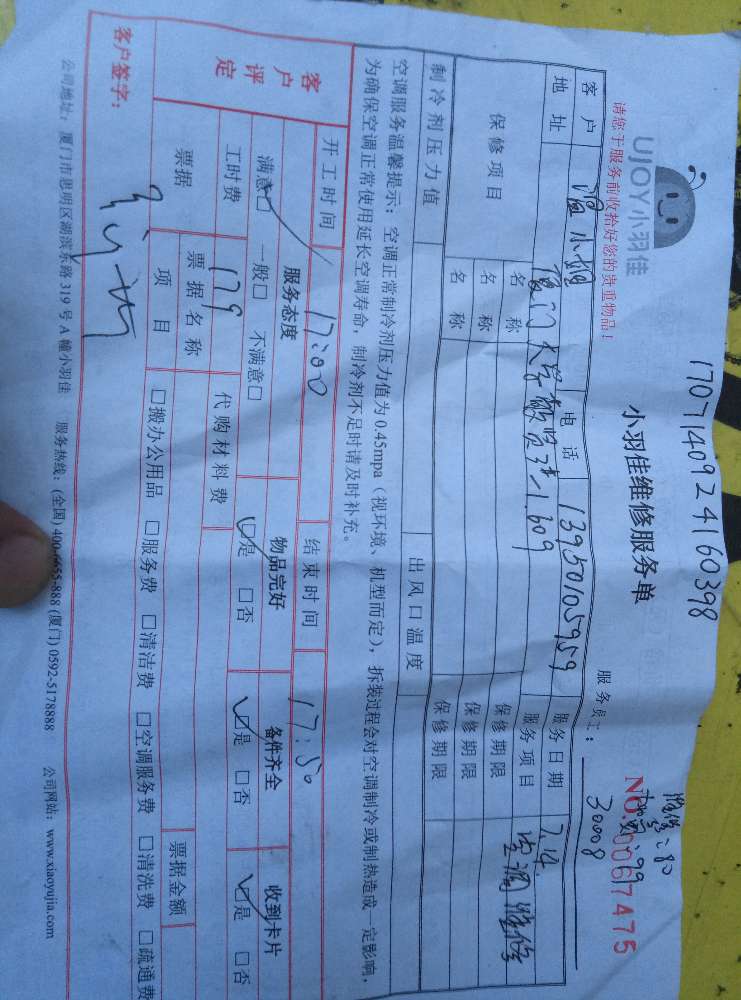 1707140924160398
UJOY小羽佳
小羽佳维修服务单
NO.0067475
请您于服务前收拾好您的贵重物品!
服务员工: 30008
客户 温小姐 电话 13950105959 服务日期 7.14
地址 厦门大学敬贤 1.609 服务项目 空调维修
保修项目 名称 保修期限
名称 保修期限
名称 保修期限
制冷剂压力值 出风口温度
空调服务温馨提示:空调正常制冷剂压力值为0.45mpa(视环境、机型而定),拆装过程会对空调制冷或制热造成一定影响,
为确保空调正常使用延长空调寿命,制冷剂不足时请及时补充。
开工时间 17:00 结束时间 17:50
客户评定 服务态度 物品完好 备件齐全 收到卡片
满意□ 一般□ 不满意□ □是 □否 □是 □否 □是 □否
工时费 179 代购材料费
票据 票据名称 票据金额
项目 □搬办公用品 □服务费 □清洁费 □空调服务费 □清洗费 □疏通费
客户签字:
公司地址:厦门市思明区湖滨东路319号A幢小羽佳 服务热线:(全国) 400-6655-888 (厦门) 0592-5178888 公司网站:www.xiaoyujia.com